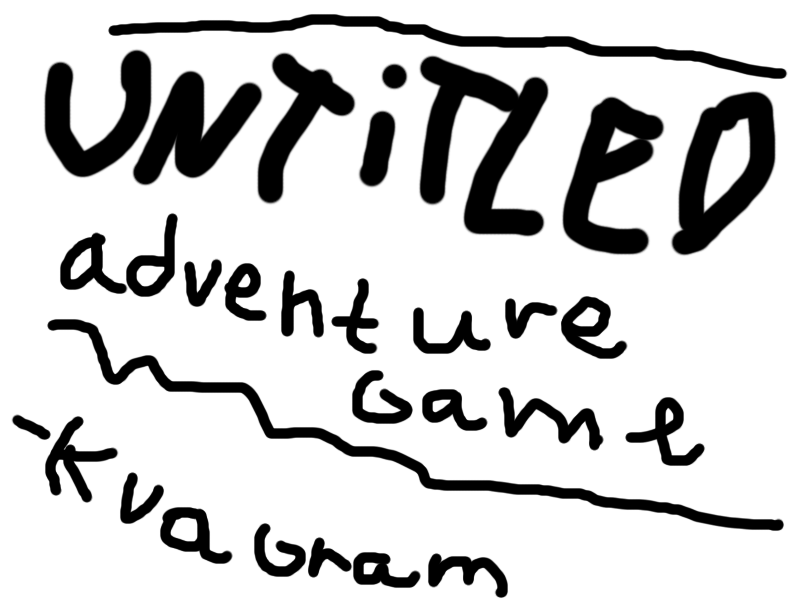 UNTiTLED
adventure
Game
-KvaGram